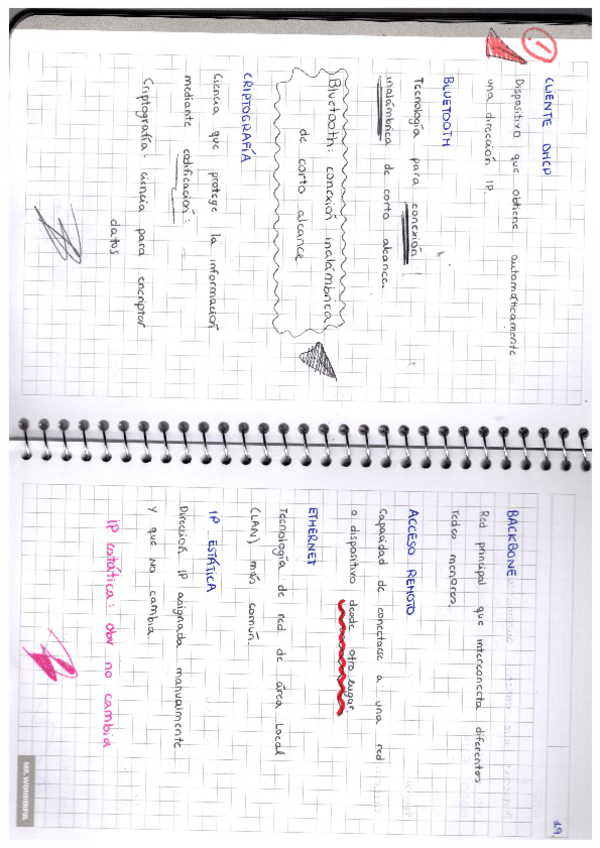 !
CLIENTE DHCP
Dispositivo que obtiene automáticamente
una dirección IP.
BLUETOOTH
Tecnología para conexión
inalámbrica de corto alcance.
Bluetooth: conexión inalámbrica
de corto alcance
CRIPTOGRAFÍA
Ciencia que protege la información
mediante codificación:
Criptografía: ciencia para encriptar
datos
19
BACKBONE
Red principal que interconecta diferentes
redes menores.
ACCESO REMOTO
Capacidad de conectarse a una red
o dispositivo desde otro lugar.
ETHERNET
Tecnología de red de área Local
(LAN) más común.
IP ESTÁTICA
Dirección IP asignada manualmente
y que no cambia.
IP estática: obv no cambia
MR. WONDERFUL